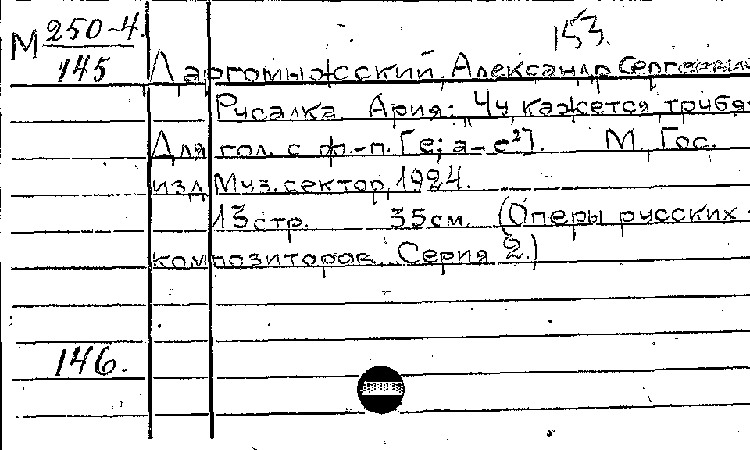 153.
М 250-4.
145
Даргомыжский, Александр Сергеевич
Русалка. Ария: Чу, кажется, трубят
Для гол. с ф.-п. [e; a-e²]. М. Гос.
изд. Муз. сектор, 1924.
13 стр. 35 см. (Оперы русских
композиторов. Серия 2.)
146.